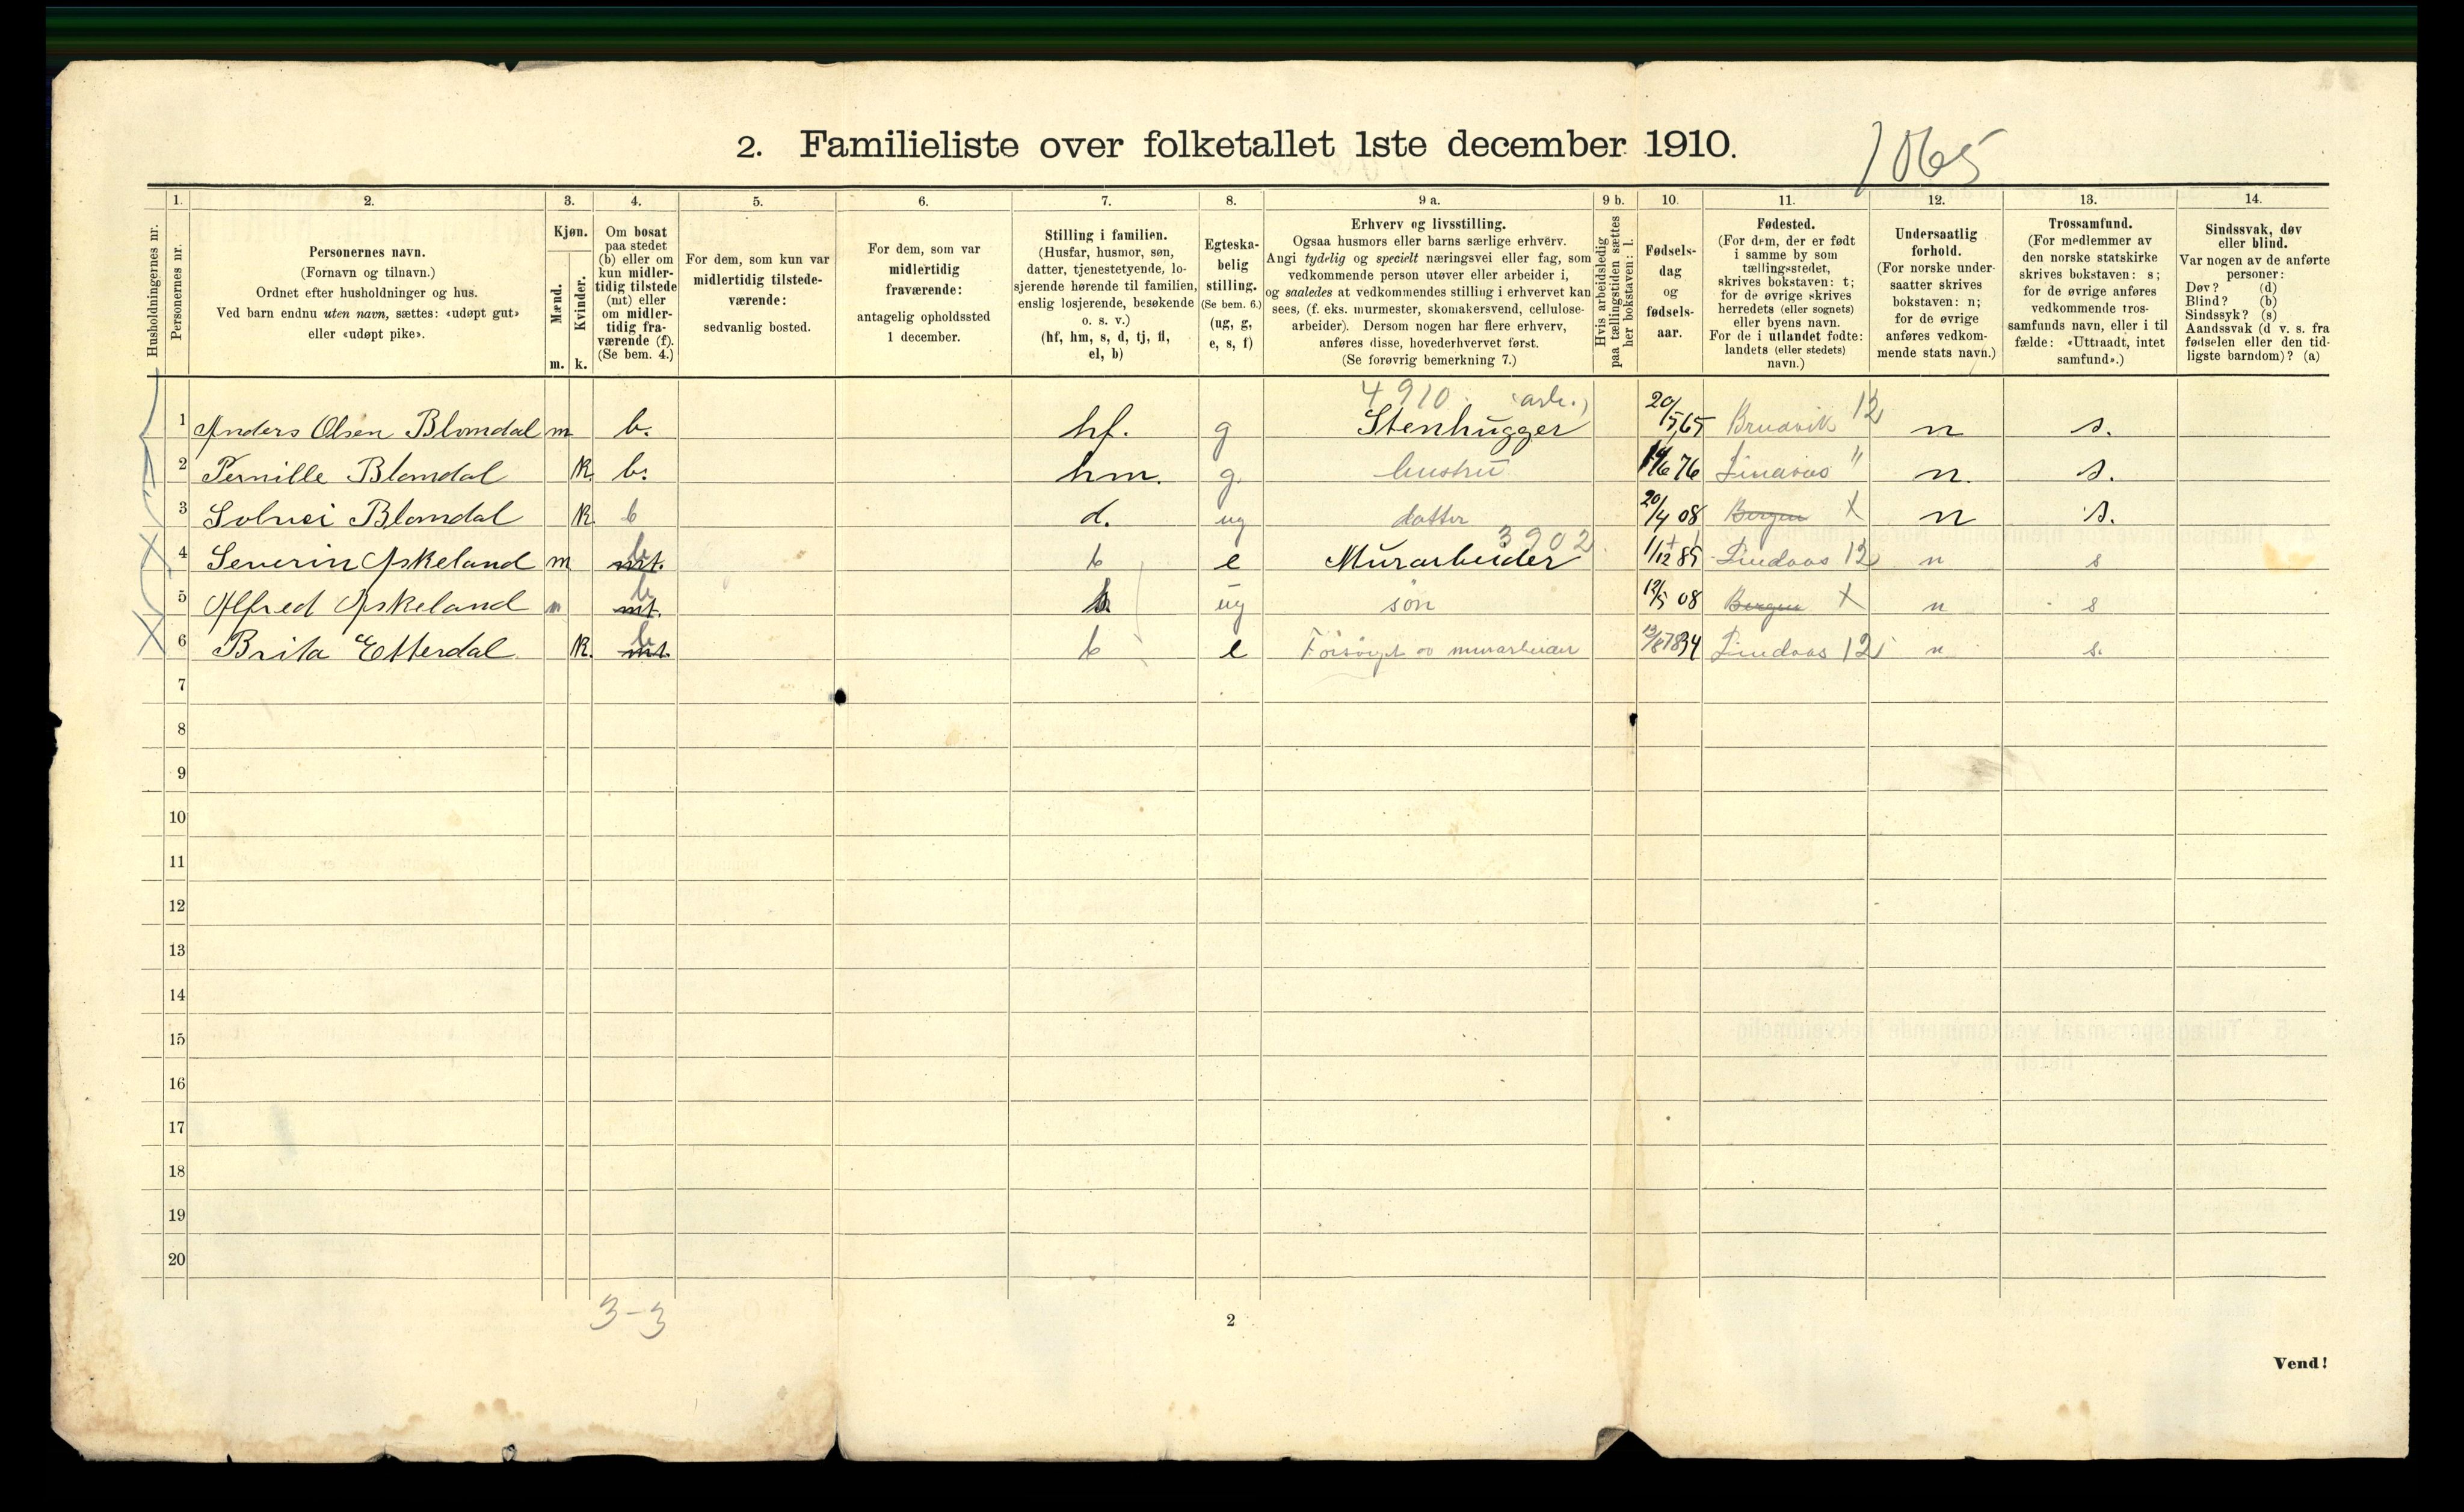 2. Familieliste over folketallet 1ste december 1910.
1065
1. 2. 3. 4. 5. 6. 7. 8. 9 a. 9 b. 10. 11. 12. 13. 14.
Husholdningernes nr.
Personernes nr.
Personernes navn.
(Fornavn og tilnavn.)
Ordnet efter husholdninger og hus.
Ved barn endnu uten navn, sættes: «udøpt gut»
eller «udøpt pike».
Kjøn.
Mænd.
Kvinder.
m. k.
Om bosat
paa stedet
(b) eller om
kun midler-
tidig tilstede
(mt) eller
om midler-
tidig fra-
værende (f).
(Se bem. 4.)
For dem, som kun var
midlertidig tilstede-
værende:
sedvanlig bosted.
For dem, som var
midlertidig
fraværende:
antagelig opholdssted
1 december.
Stilling i familien.
(Husfar, husmor, søn,
datter, tjenestetyende, lo-
sjerende hørende til familien,
enslig losjerende, besøkende
o. s. v.)
(hf, hm, s, d, tj, fl,
el, b)
Egteska-
belig
stilling.
(Se bem. 6.)
(ug, g,
e, s, f)
Erhverv og livsstilling.
Ogsaa husmors eller barns særlige erhverv.
Angi tydelig og specielt næringsvei eller fag, som
vedkommende person utøver eller arbeider i,
og saaledes at vedkommendes stilling i erhvervet kan
sees, (f. eks. murmester, skomakersvend, cellulose-
arbeider). Dersom nogen har flere erhverv,
anføres disse, hovederhvervet først.
(Se forøvrig bemerkning 7.)
Hvis arbeidsledig
paa tællingstiden sættes
her bokstaven: l.
Fødsels-
dag
og
fødsels-
aar.
Fødested.
(For dem, der er født
i samme by som
tællingsstedet,
skrives bokstaven: t;
for de øvrige skrives
herredets (eller sognets)
eller byens navn.
For de i utlandet fødte:
landets (eller stedets)
navn.)
Undersaatlig
forhold.
(For norske under-
saatter skrives
bokstaven: n;
for de øvrige
anføres vedkom-
mende stats navn.)
Trossamfund.
(For medlemmer av
den norske statskirke
skrives bokstaven: s;
for de øvrige anføres
vedkommende tros-
samfunds navn, eller i til
fælde: «Uttraadt, intet
samfund».)
Sindssvak, døv
eller blind.
Var nogen av de anførte
personer:
Døv? (d)
Blind? (b)
Sindssyk? (s)
Aandssvak (d v. s. fra
fødselen eller den tid-
ligste barndom)? (a)
4910 (arb.)
1 Anders Olsen Blomdal m b. hf. g Stenhugger 20/5 65 Bruavik 12 n s.
2 Pernille Blomdal K. b. hm. g. hustru 14/6 76 Lindaas " n. s.
3 Solvei Blomdal K b d. ug datter 20/4 08 Bergen X n s.
3902
4 Severin Askeland m mt. b b e Murarbeider 1/12 85 Lindaas 12 n s
5 Alfred Askeland m mt. b b ug søn 12/5 08 Bergen X n s
6 Brita Etterdal K. mt. b b e Forsørget av murarbeider 13/8 1834 Lindaas 12 n s.
7
8
9
10
11
12
13
14
15
16
17
18
19
20
3-3
2
Vend!